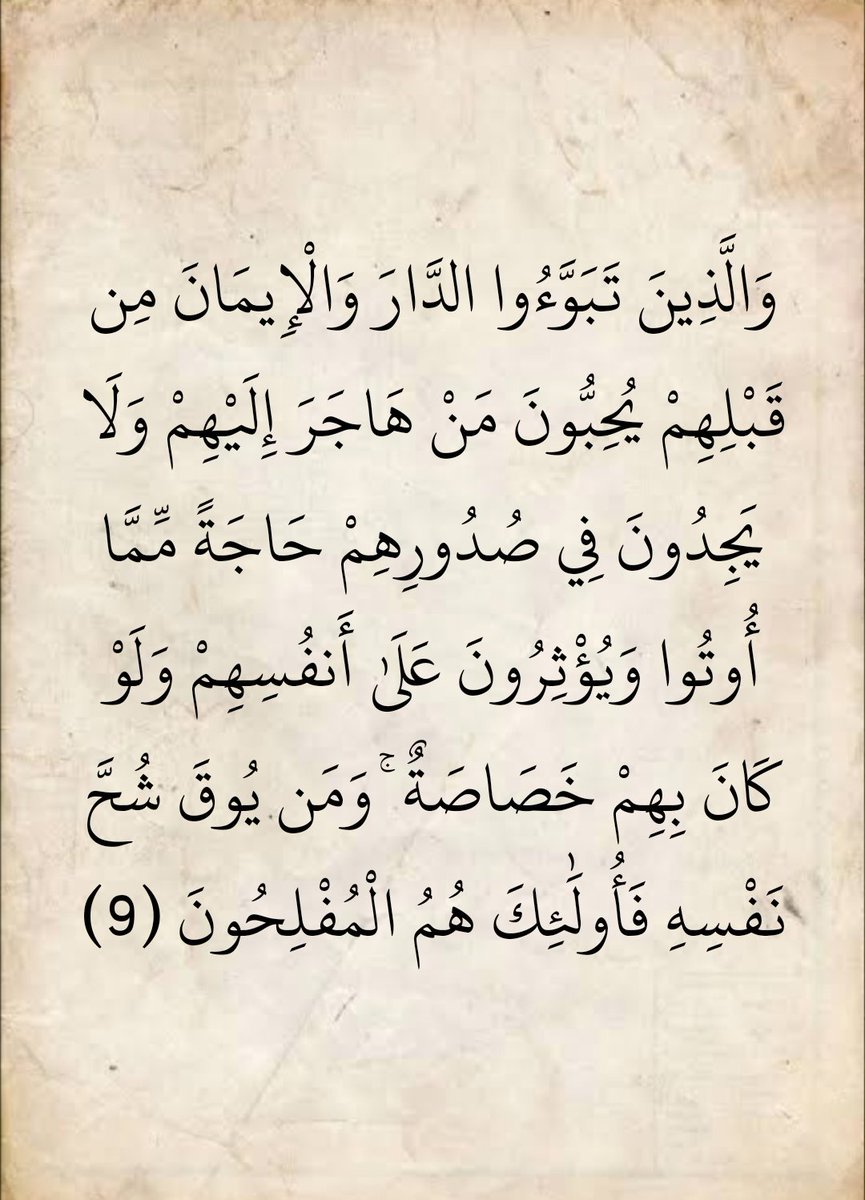 وَالَّذِينَ تَبَوَّءُوا الدَّارَ وَالْإِيمَانَ مِن
قَبْلِهِمْ يُحِبُّونَ مَنْ هَاجَرَ إِلَيْهِمْ وَلَا
يَجِدُونَ فِي صُدُورِهِمْ حَاجَةً مِّمَّا
أُوتُوا وَيُؤْثِرُونَ عَلَىٰ أَنفُسِهِمْ وَلَوْ
كَانَ بِهِمْ خَصَاصَةٌ ۚ وَمَن يُوقَ شُحَّ
نَفْسِهِ فَأُولَٰئِكَ هُمُ الْمُفْلِحُونَ (9)